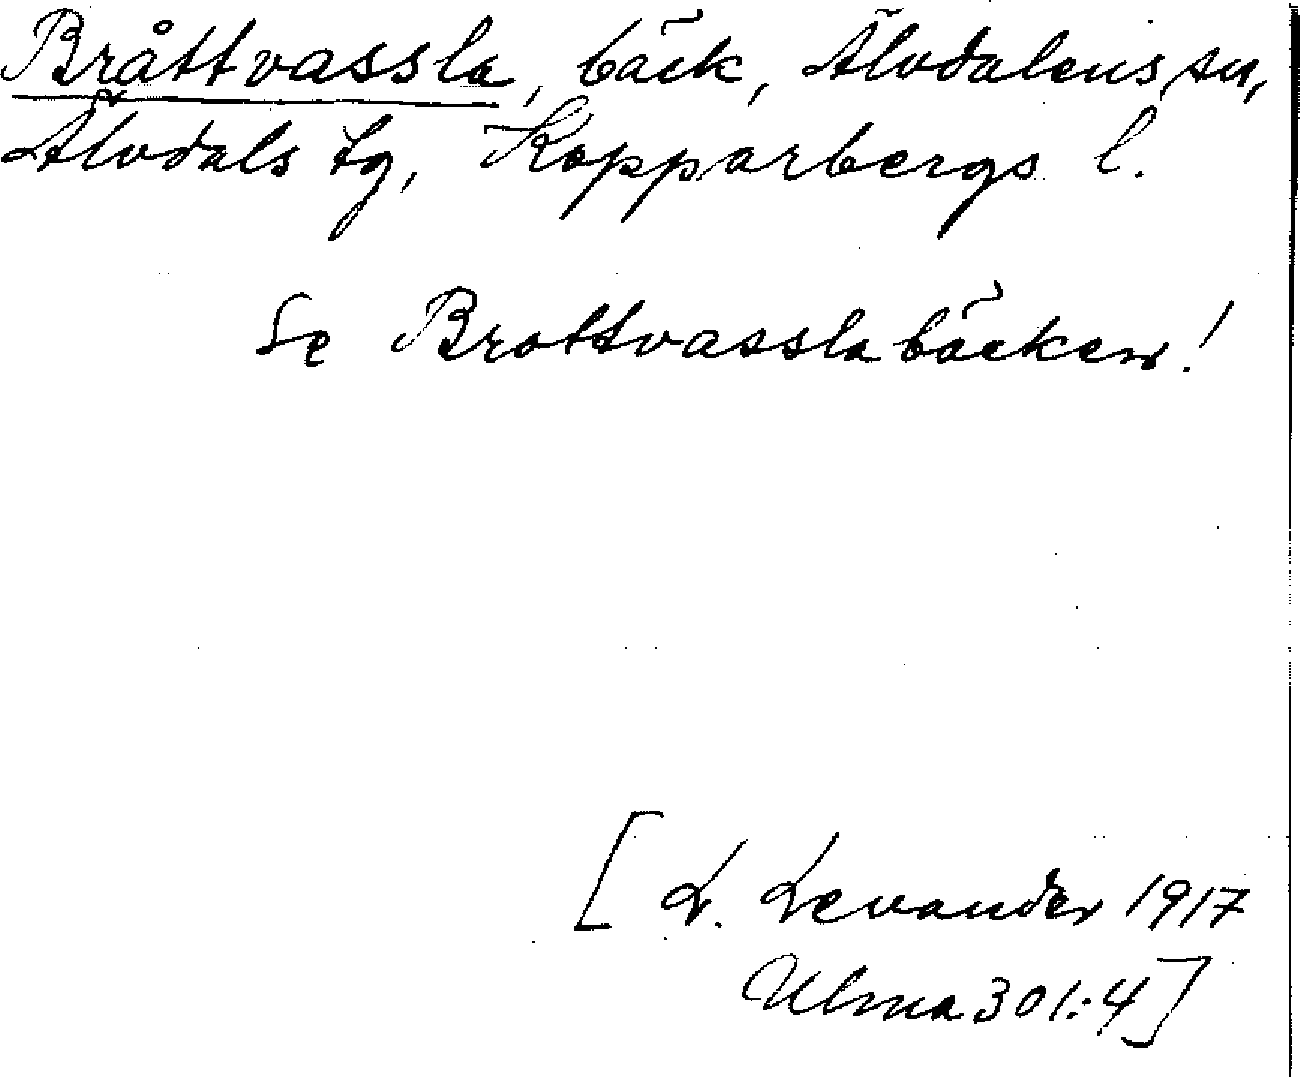 Bråttvassla, bäck, Älvdalens sn,
Älvdals tg, Kopparbergs l.
Se Brottvasslabäcken!
[L. Levander 1917
Ulma 301:4]